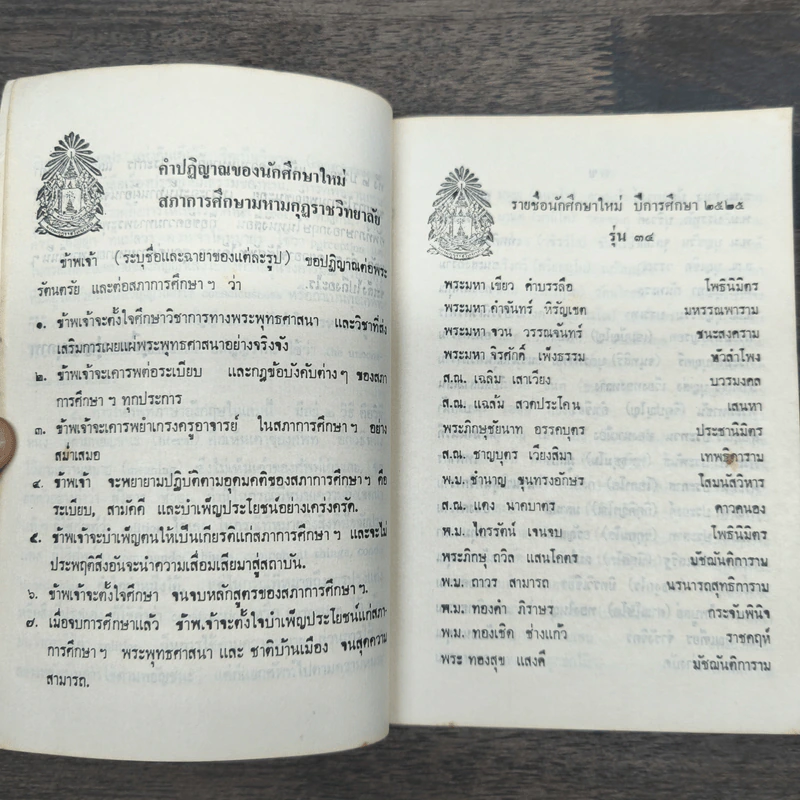 คำปฏิญาณของนักศึกษาใหม่
สภาการศึกษามหามกุฏราชวิทยาลัย
ข้าพเจ้า (ระบุชื่อและฉายาของแต่ละรูป) ขอปฏิญาณต่อพระ
รัตนตรัย และต่อสภาการศึกษา ฯ ว่า
๑. ข้าพเจ้าจะตั้งใจศึกษาวิชาการทางพระพุทธศาสนา และวิชาที่ส่ง
เสริมการเผยแผ่พระพุทธศาสนาอย่างจริงจัง
๒. ข้าพเจ้าจะเคารพต่อระเบียบ และกฎข้อบังคับต่างๆ ของสภา
การศึกษา ฯ ทุกประการ
๓. ข้าพเจ้าจะเคารพยาเกรงครูอาจารย์ ในสภาการศึกษา ฯ อย่าง
สม่ำเสมอ
๔. ข้าพเจ้า จะพยายามปฏิบัติตามอุดมคติของสภาการศึกษา ฯ คือ
ระเบียบ, สามัคคี และบำเพ็ญประโยชน์อย่างเคร่งครัด.
๕. ข้าพเจ้าจะบำเพ็ญตนให้เป็นเกียรติแก่สภาการศึกษา ฯ และจะไม่
ประพฤติสิ่งอันจะนำความเสื่อมเสียมาสู่สถาบัน.
๖. ข้าพเจ้าจะตั้งใจศึกษา จนจบหลักสูตรของสภาการศึกษา ฯ.
๗. เมื่อจบการศึกษาแล้ว ข้าพเจ้าจะตั้งใจบำเพ็ญประโยชน์แก่สภา-
การศึกษา ฯ พระพุทธศาสนา และ ชาติบ้านเมือง จนสุดความ
สามารถ.
รายชื่อนักศึกษาใหม่ ปีการศึกษา ๒๕๒๕
รุ่น ๓๔
พระมหา เขียว คำบรรลือ โพธินิมิตร
พระมหา คำจันทร์ หิรัญเขต มหรรณพาราม
พระมหา จวน วรรณจันทร์ ชนะสงคราม
พระมหา จิรศักดิ์ เพ็งธรรม หัวลำโพง
ส.ณ. เฉลิม เสาเวียง บวรมงคล
ส.ณ. แฉล้ม สวดประโคน เสนหา
พระภิกษุชัยนาท อรรคบุตร ประชานิมิตร
ส.ณ. ชาญบุตร เวียงสิมา เทพธิดาราม
พ.ม. ชำนาญ ขุนทรงอักษร โสมนัสวิหาร
ส.ณ. แดง นาคบาตร ดาวคนอง
พ.ม. ไตรรัตน์ เจนจบ โพธินิมิตร
พระภิกษุ ถวิล แสนโคตร มัชฌันติการาม
พ.ม. ถาวร สามารถ นรนารถสุทธิการาม
พ.ม. ทองคำ ภิราษร กระจับพินิจ
พ.ม. ทองเชิด ช่างแก้ว ราชคฤห์
พระ ทองสุข แสงดี มัชฌันติการาม